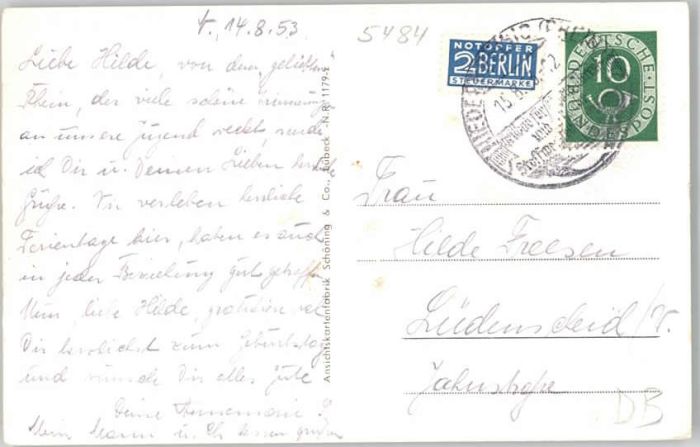 14.8.53
5484
Liebe Hilde, von dem "geliebten"
Rhein, der viele schöne Erinnerung
an unsere Jugend weckt, sende
ich Dir u. Deinen Lieben herzliche
Grüße. Wir verleben herrliche
Ferientage hier, haben es auch
in jeder Beziehung gut getroffen
Nun, liebe Hilde, gratuliere ich
Dir herzlichst zum Geburtstag
und wünsche Dir alles Gute
Deine Annemarie
Mein Mann u. lassen grüßen
Ansichtskartenfabrik Schöning & Co., Lübeck - N.R. 1179-
NOTOPFER
2 BERLIN
STEUERMARKE
DEUTSCHE
BUNDESPOST
10
Frau
Hilde Freesen
Lüdenscheid/W.
Jahnstraße
DB